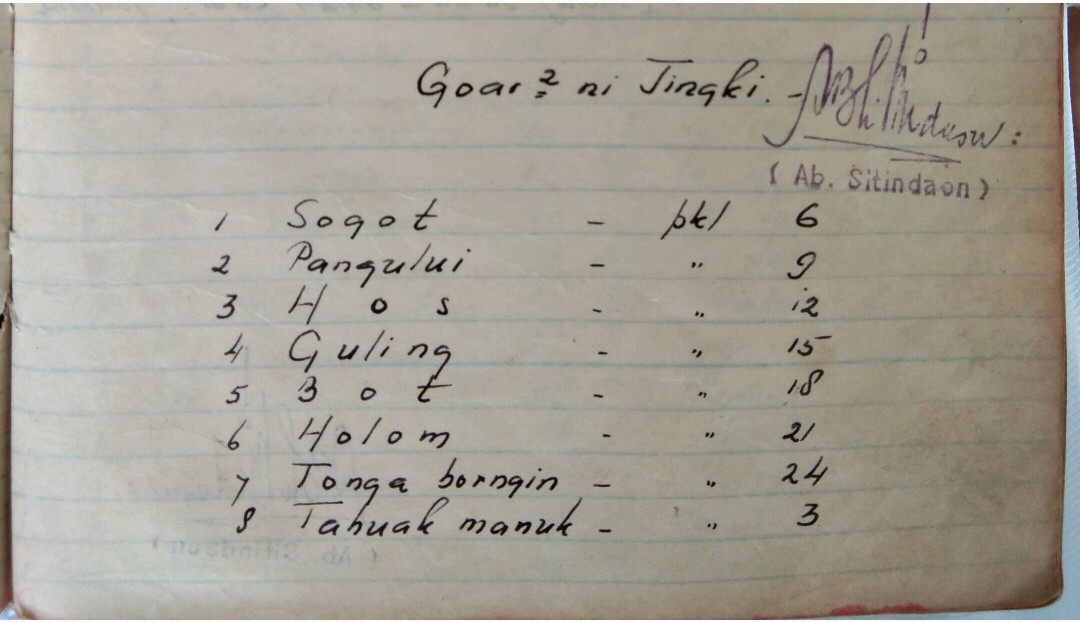 Goar² ni Tingki.
( Ab. Sitindaon )
1 Sogot - pkl 6
2 Pangului - " 9
3 Hos - " 12
4 Guling - " 15
5 Bot - " 18
6 Holom - " 21
7 Tonga borngin - " 24
8 Tahuak manuk - " 3